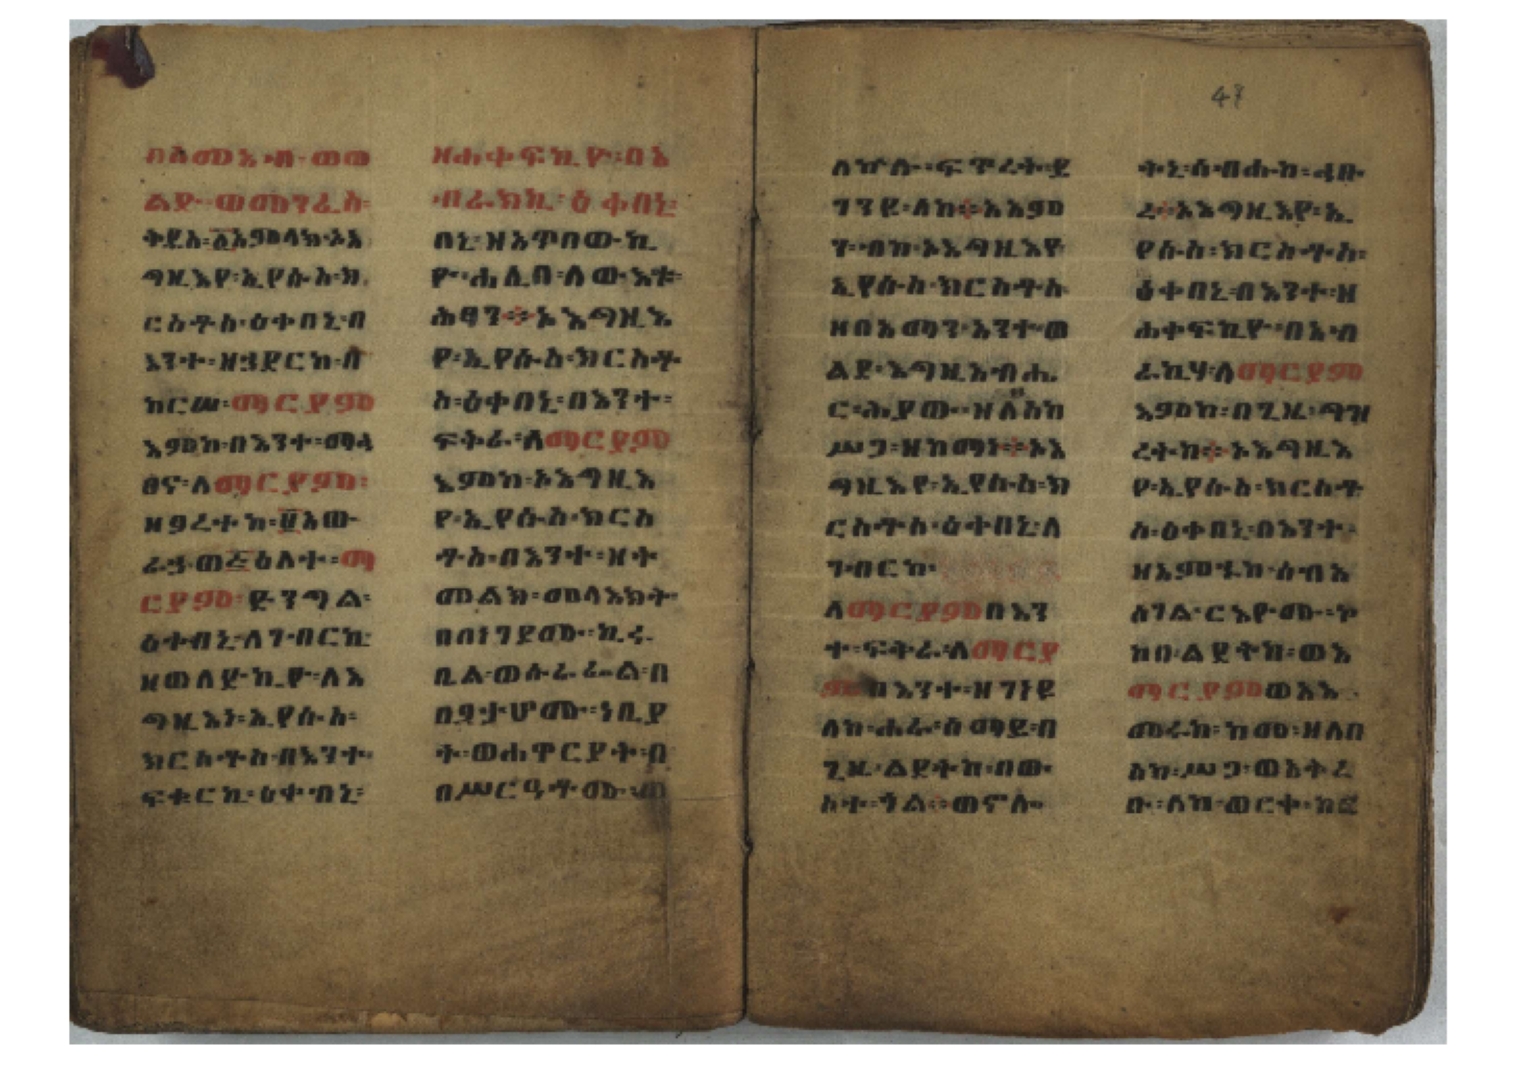 በስመ፡ አብ፡ ወወ
ልድ፡ ወመንፈስ፡
ቅዱስ፡ ፩አምላክ፡ ኦእ
ግዚእየ፡ ኢየሱስ፡ ክ
ርስቶስ፡ ዕቀበኒ፡ በ
እንተ፡ ዘኃደርከ፡ በ
ከርሠ፡ ማርያም
እምከ፡ በእንተ፡ ማኅ
ፀና፡ ለማርያም፡
ዘፆረተከ፡ ፱አው
ራኃ፡ ወ፭ዕለተ፡ ማ
ርያም፡ ድንግል፡
ዕቀብኒ፡ ለገብርኪ፡
ዘወለድኪዮ፡ ለእ
ግዚእነ፡ ኢየሱስ፡
ክርስቶስ፡ በእንተ፡
ፍቁርኪ፡ ዕቀብኒ፡
ዘሐቀፍኪዮ፡ በእ
ብራክኪ፡ ዕቀበኒ፡
በኒ፡ ዘአጥበውኪ
ዮ፡ ሐሊበ፡ ለውእቱ፡
ሕፃን። ኦእግዚእ
የ፡ ኢየሱስ፡ ክርስቶ
ስ፡ ዕቀበኒ፡ በእንተ፡
ፍቅራ፡ ለማርያም
እምከ፡ ኦእግዚእ
የ፡ ኢየሱስ፡ ክርስ
ቶስ፡ በእንተ፡ ዘት
መልክ፡ መላእክት፡
በበነገዶሙ፡ ኪሩ
ቤል፡ ወሱራፌል፡ በ
በጾታሆሙ፡ ነቢያ
ት፡ ወሐዋርያት፡ በ
በሥርዓቶሙ፡ ወ
ለኵሉ፡ ፍጥረት፡ ይ
ገንዩ፡ ለከ። አአም
ን፡ ብከ፡ ኦእግዚእየ
ኢየሱስ፡ ክርስቶስ
ዘበአማን፡ አንተ፡ ወ
ልደ፡ እግዚአብሔ
ር፡ ሕያው፡ ዘለበስከ
ሥጋ፡ ዘከማነ። ኦእ
ግዚእየ፡ ኢየሱስ፡ ክ
ርስቶስ፡ ዕቀበኒ፡ ለ
ገብርከ፡
ለማርያም በእን
ተ፡ ፍቅራ፡ ለማርያ
ም በእንተ፡ ዘገነየ
ለከ፡ ሐራ፡ ሰማይ፡ በ
ጊዜ፡ ልደትከ፡ በው
ስተ፡ ጎል። ወኖሎ
ትኒ፡ ሰብሑከ፡ ኃቡ
ረ። ኦእግዚእየ፡ ኢ
የሱስ፡ ክርስቶስ፡
ዕቀበኒ፡ በእንተ፡ ዘ
ሐቀፍኪዮ፡ በእብ
ራኪሃ፡ ለማርያም
እምከ፡ በጊዜ፡ ግዝ
ረትከ። ኦእግዚእ
የ፡ ኢየሱስ፡ ክርስቶ
ስ፡ ዕቀበኒ፡ በእንተ፡
ዘአምኁከ፡ ሰብአ
ሰገል፡ ርእዮሙ፡ ኮ
ከበ፡ ልደትከ፡ ወእ
ማርያም ወአእ
መሩከ፡ ከመ፡ ዘለበ
ስከ፡ ሥጋ፡ ወአቅረ
ቡ፡ ለከ፡ ወርቀ፡ ከመ